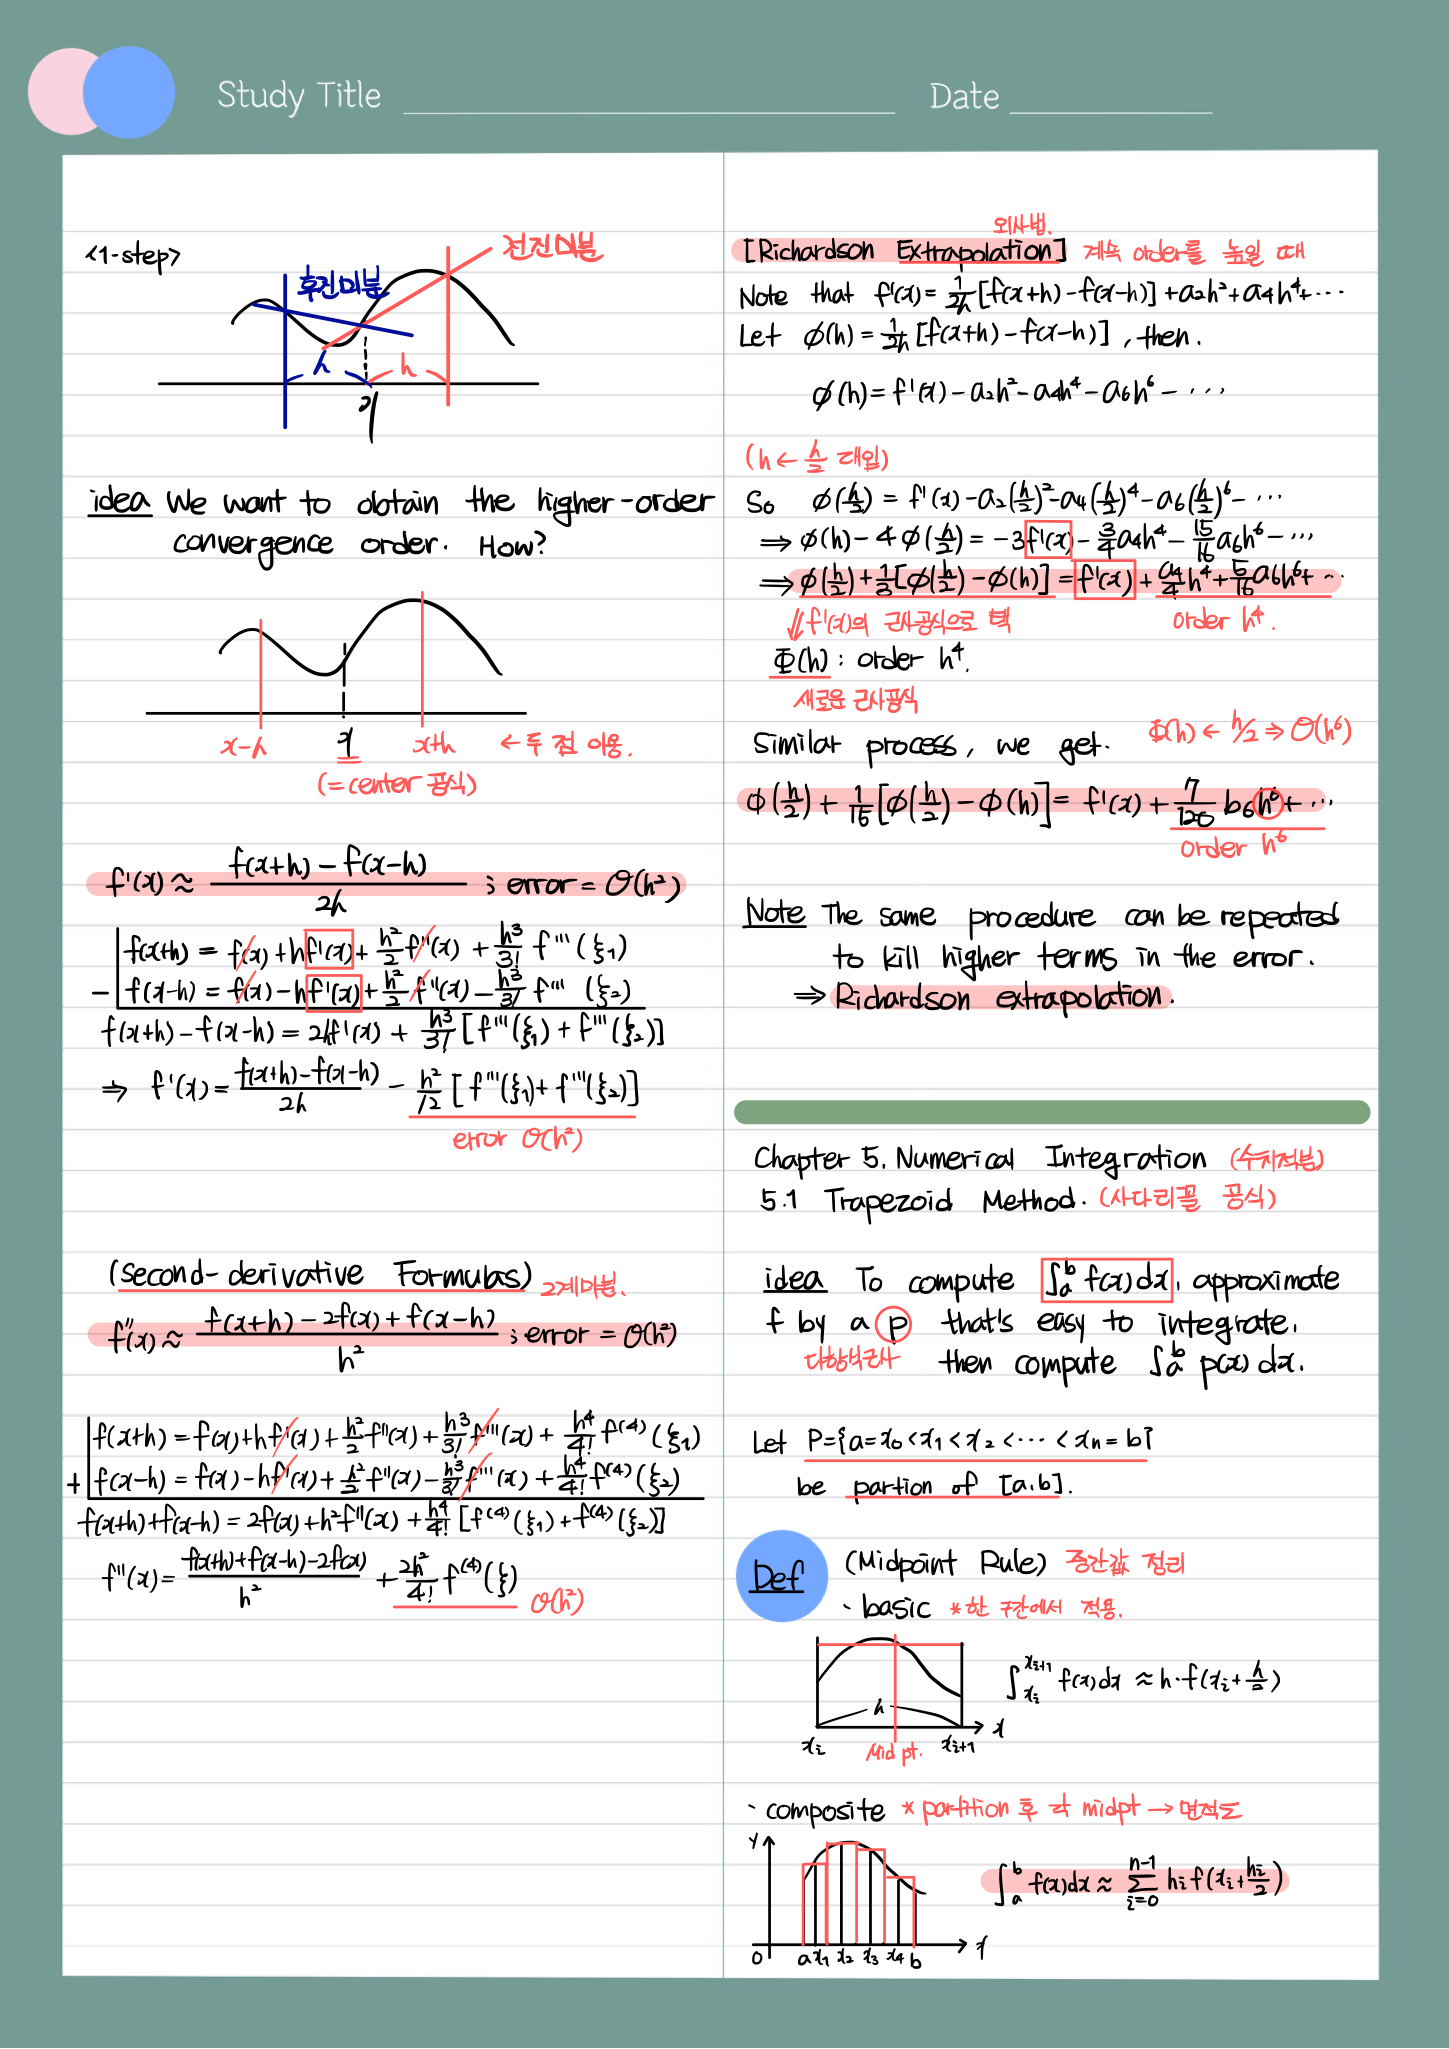 Study Title
Date
<1-step>
전진미분
후진미분
h
h
x
idea We want to obtain the higher-order
convergence order. How?
x-h
x
x+h
← 두 점 이용.
(= center 공식)
f'(x) ≈ (f(x+h) - f(x-h))/2h ; error = O(h²)
f(x+h) = f(x) + hf'(x) + h²/2 f''(x) + h³/3! f'''(ξ₁)
- f(x-h) = f(x) - hf'(x) + h²/2 f''(x) - h³/3! f'''(ξ₂)
f(x+h) - f(x-h) = 2hf'(x) + h³/3! [f'''(ξ₁) + f'''(ξ₂)]
⇒ f'(x) = (f(x+h) - f(x-h))/2h - h²/12 [f'''(ξ₁) + f'''(ξ₂)]
error O(h²)
(Second-derivative Formulas) 2계미분.
f''(x) ≈ (f(x+h) - 2f(x) + f(x-h))/h² ; error = O(h²)
f(x+h) = f(x) + hf'(x) + h²/2 f''(x) + h³/3! f'''(x) + h⁴/4! f⁽⁴⁾(ξ₁)
+ f(x-h) = f(x) - hf'(x) + h²/2 f''(x) - h³/3! f'''(x) + h⁴/4! f⁽⁴⁾(ξ₂)
f(x+h) + f(x-h) = 2f(x) + h²f''(x) + h⁴/4! [f⁽⁴⁾(ξ₁) + f⁽⁴⁾(ξ₂)]
f''(x) = (f(x+h) + f(x-h) - 2f(x))/h² + 2h²/4! f⁽⁴⁾(ξ)
O(h²)
외사법.
[Richardson Extrapolation] 계속 order를 높일 때
Note that f'(x) = 1/2h [f(x+h) - f(x-h)] + a₂h² + a₄h⁴ + ⋯
Let ϕ(h) = 1/2h [f(x+h) - f(x-h)], then.
ϕ(h) = f'(x) - a₂h² - a₄h⁴ - a₆h⁶ - ⋯
(h ← h/2 대입)
So ϕ(h/2) = f'(x) - a₂(h/2)² - a₄(h/2)⁴ - a₆(h/2)⁶ - ⋯
⇒ ϕ(h) - 4ϕ(h/2) = -3f'(x) - 3/4 a₄h⁴ - 15/16 a₆h⁶ - ⋯
⇒ ϕ(h/2) + 1/3 [ϕ(h/2) - ϕ(h)] = f'(x) + a₄/4 h⁴ + 5/16 a₆h⁶ + ⋯
⇓ f'(x)의 근사공식으로 택
order h⁴.
Φ(h) : order h⁴.
새로운 근사공식
Similar process, we get.
Φ(h) ← h/2 ⇒ O(h⁶)
ϕ(h/2) + 1/15 [ϕ(h/2) - ϕ(h)] = f'(x) + 7/120 b₆h⁶ + ⋯
order h⁶
Note The same procedure can be repeated
to kill higher terms in the error.
⇒ Richardson extrapolation.
Chapter 5. Numerical Integration (수치적분)
5.1 Trapezoid Method. (사다리꼴 공식)
idea To compute ∫ₐᵇ f(x)dx, approximate
f by a p that's easy to integrate,
다항식근사
then compute ∫ₐᵇ p(x) dx.
Let P={a=x₀<x₁<x₂<⋯<xₙ=b}
be partion of [a,b].
Def
(Midpoint Rule) 중간값 정리
· basic *한 구간에서 적용.
h
x
xᵢ
Mid pt.
xᵢ₊₁
∫_{xᵢ}^{xᵢ₊₁} f(x)dx ≈ h·f(xᵢ + h/2)
· composite * partition 후 각 midpt → 면적도
y
0
a x₁ x₂ x₃ x₄ b
x
∫ₐᵇ f(x)dx ≈ ∑_{i=0}^{n-1} hᵢ f(xᵢ + hᵢ/2)